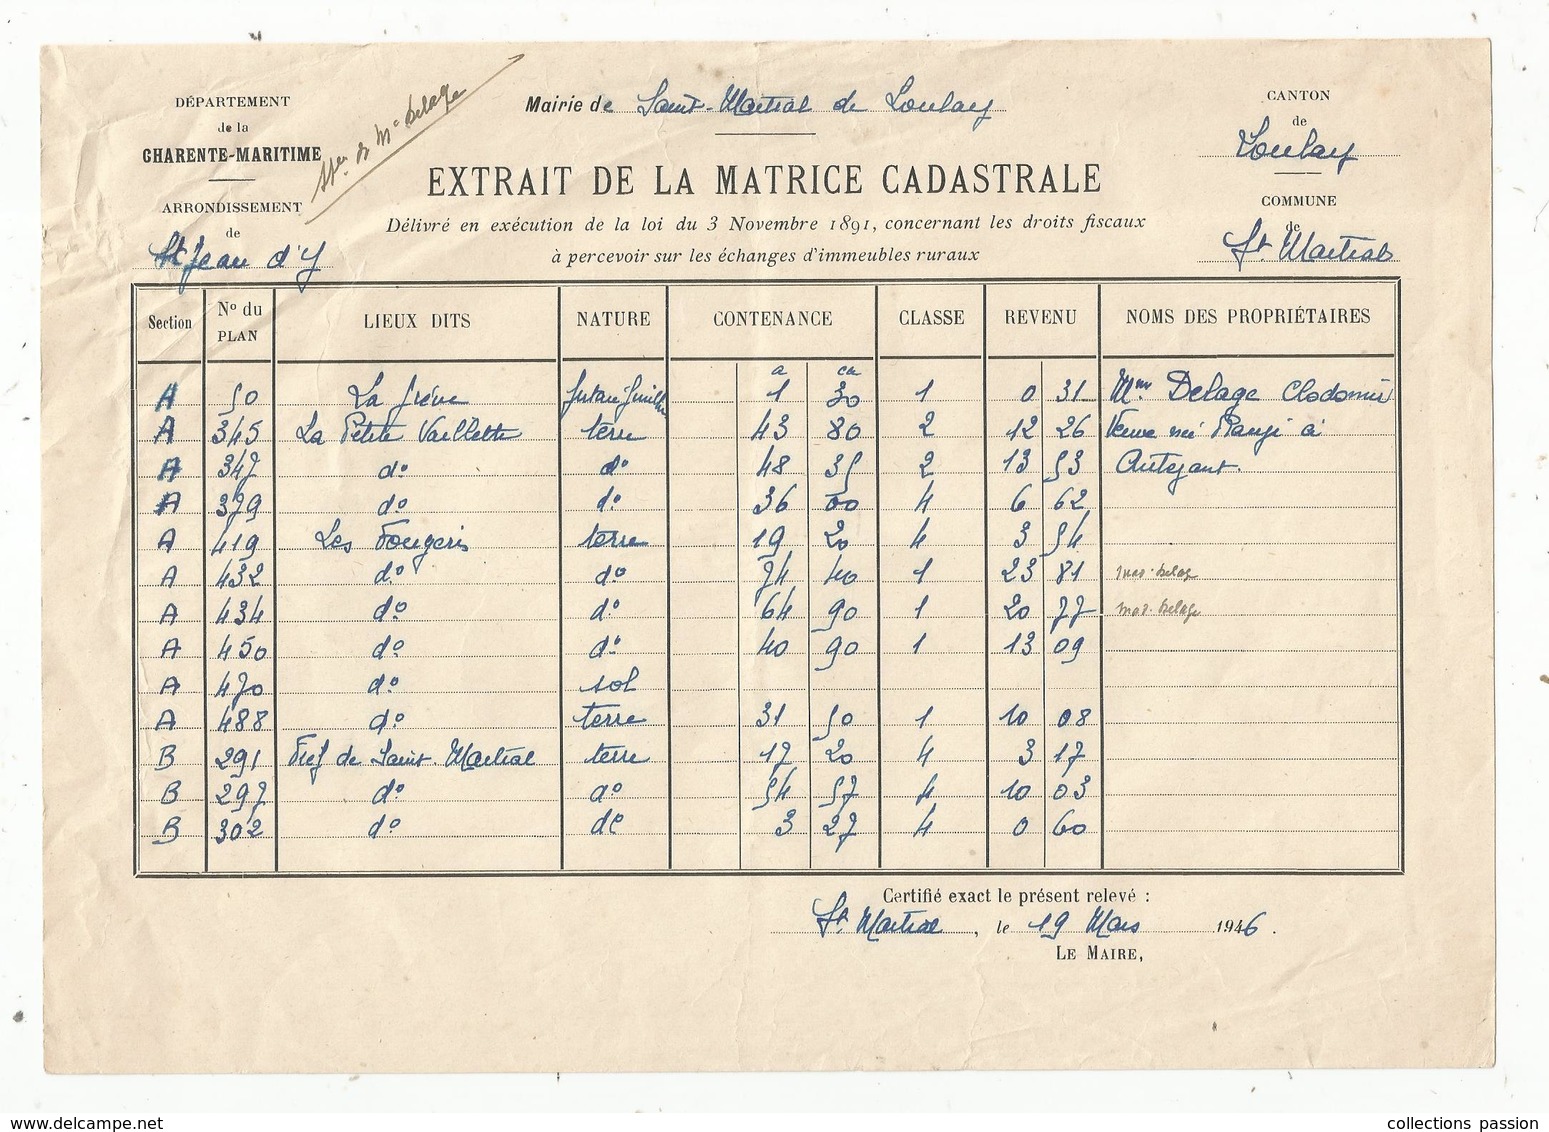 DÉPARTEMENT
de la
CHARENTE-MARITIME
ARRONDISSEMENT
de
St Jean d'Y
de Me Delage
Mairie de Saint-Martial de Loulay
EXTRAIT DE LA MATRICE CADASTRALE
Délivré en exécution de la loi du 3 Novembre 1891, concernant les droits fiscaux
à percevoir sur les échanges d'immeubles ruraux
CANTON
de
Loulay
COMMUNE
de
St Martial
Section N° du PLAN LIEUX DITS NATURE CONTENANCE CLASSE REVENU NOMS DES PROPRIÉTAIRES
a ca
A 50 La 1 30 1 0 31 Mme Delage Clodomir
A 345 La Petite Vaillette terre 43 80 2 12 26 Veuve née à
A 347 do do 48 35 2 13 53 Antezant.
A 379 do do 36 00 4 6 62
A 419 Les Fougeris terre 19 20 4 3 54
A 432 do do 74 40 1 23 81
A 434 do do 64 90 1 20 77 Delage
A 450 do do 40 90 1 13 09
A 470 do sol
A 488 do terre 31 50 1 10 08
B 291 Fief de Saint-Martial terre 17 20 4 3 17
B 297 do do 54 57 4 10 03
B 302 do do 3 27 4 0 60
Certifié exact le présent relevé :
St Martial, le 19 Mars 1946.
LE MAIRE,
collections passion